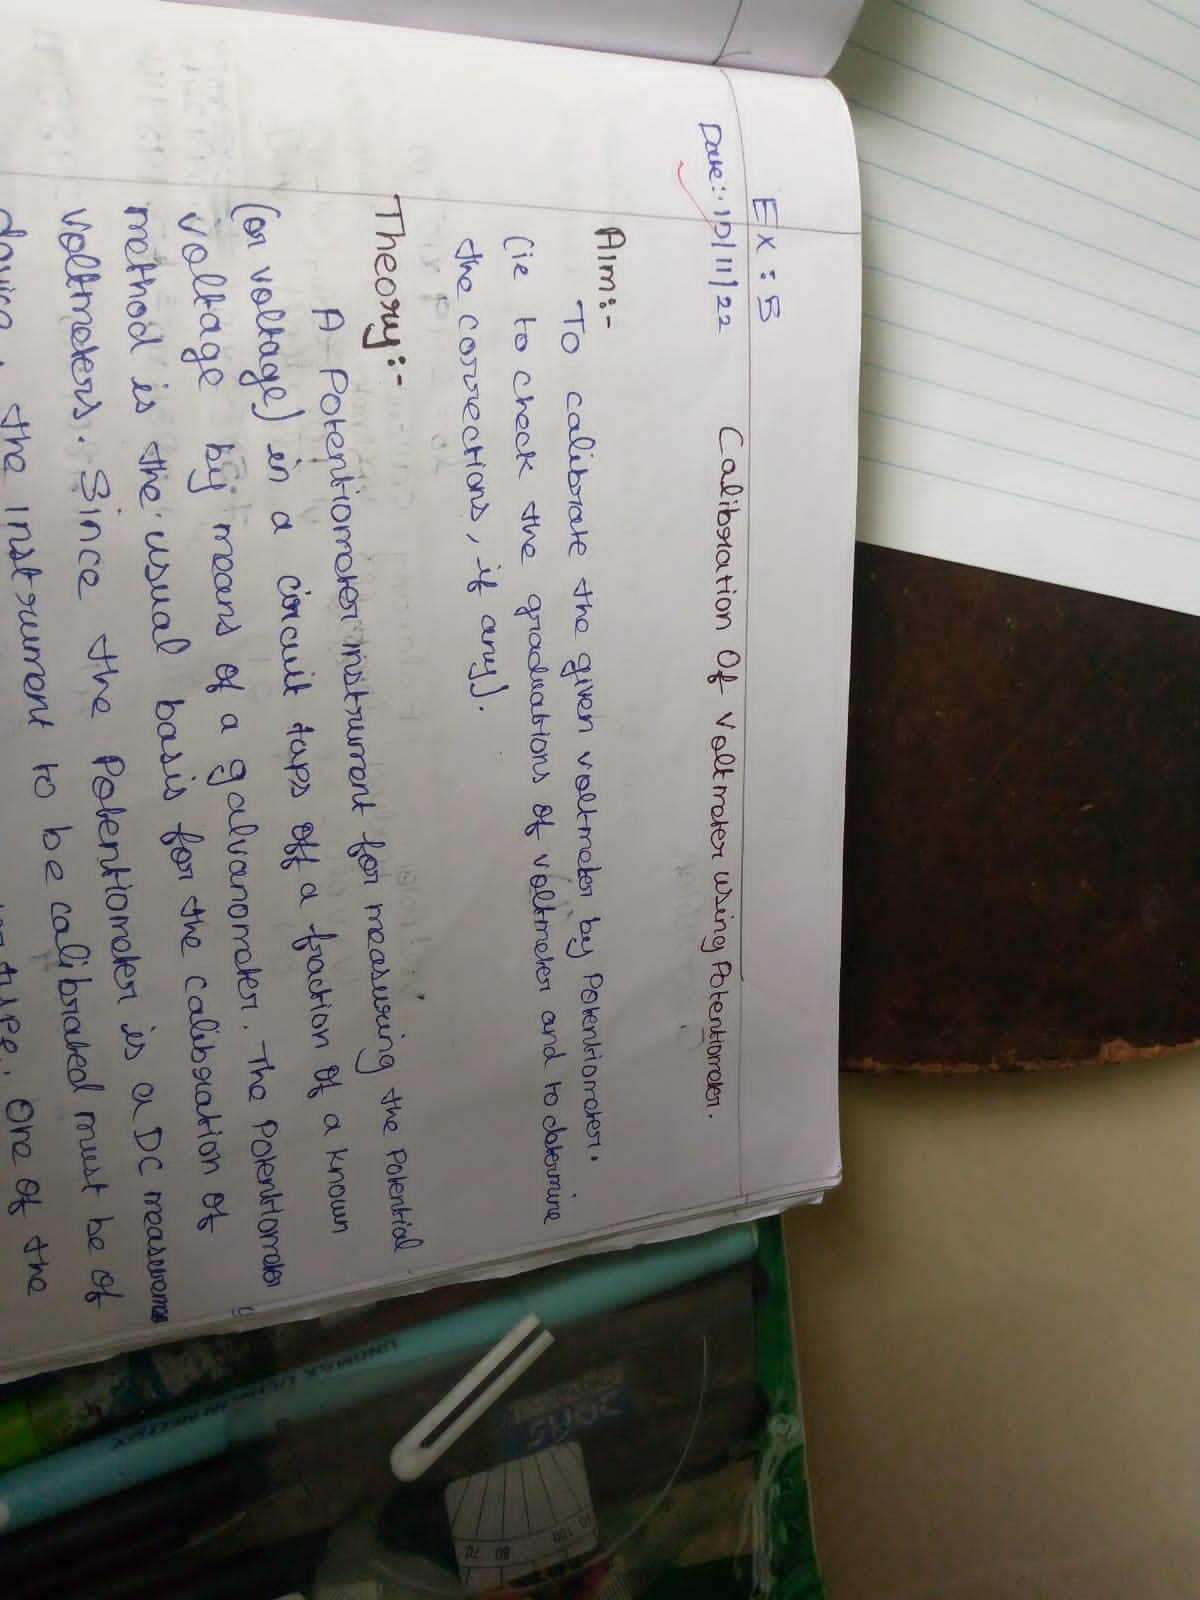 Ex : 5
Date:- 10/11/22
Calibration Of voltmeter using Potentiometer.
Aim:-
To calibrate the given voltmeter by Potentiometer.
(ie to check the graduations of voltmeter and to determine
the corrections, if any).
Theory:-
A Potentiometer instrument for measuring the Potential
(or voltage) in a circuit taps off a fraction of a known
voltage by means of a galvanometer. The Potentiometer
method is the usual basis for the calibration of
voltmeters. Since the Potentiometer is a DC
the instrument to be calibrated must be of
type. One of the
UNOMAX
DOMS
70 80
100